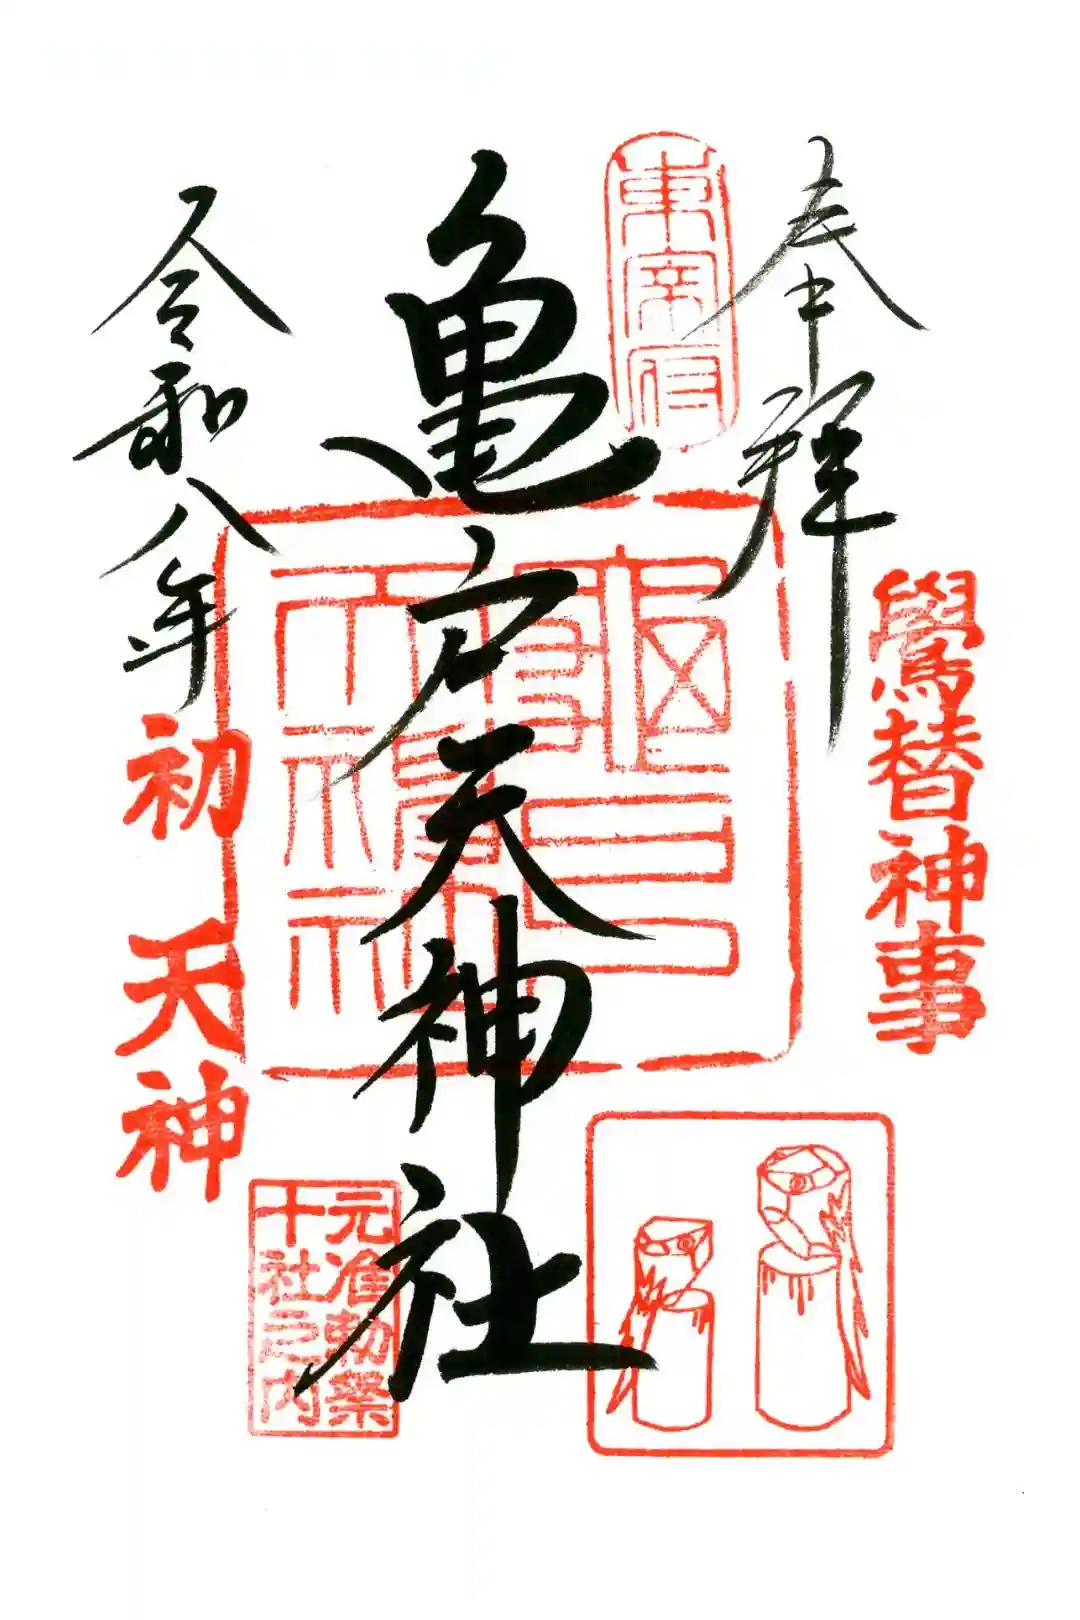 奉拝
鷽替神事
東宰府
亀戸天神社
令和八年
初天神
元准勅祭
十社之内